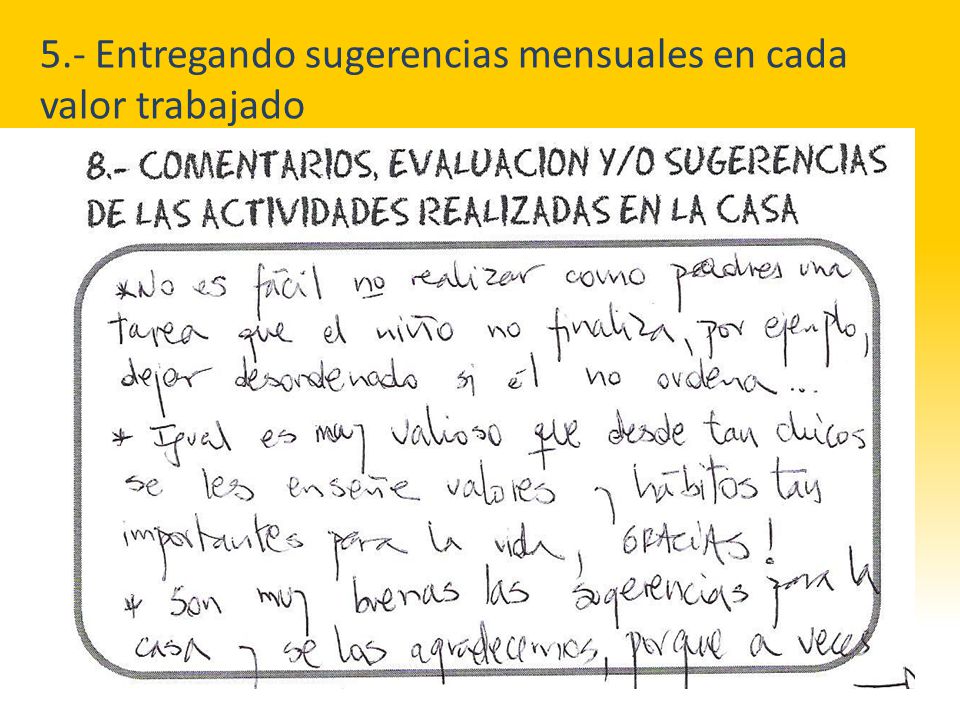 5.- Entregando sugerencias mensuales en cada
valor trabajado
8.- COMENTARIOS, EVALUACION Y/O SUGERENCIAS
DE LAS ACTIVIDADES REALIZADAS EN LA CASA
*No es fácil no realizar como padres una
tarea que el niño no finaliza, por ejemplo,
dejar desordenado si él no ordena...
* Igual es muy valioso que desde tan chicos
se les enseñe valores y hábitos tan
importantes para la vida, GRACIAS!
* Son muy buenas las sugerencias para la
casa y se las agradecemos, porque a veces